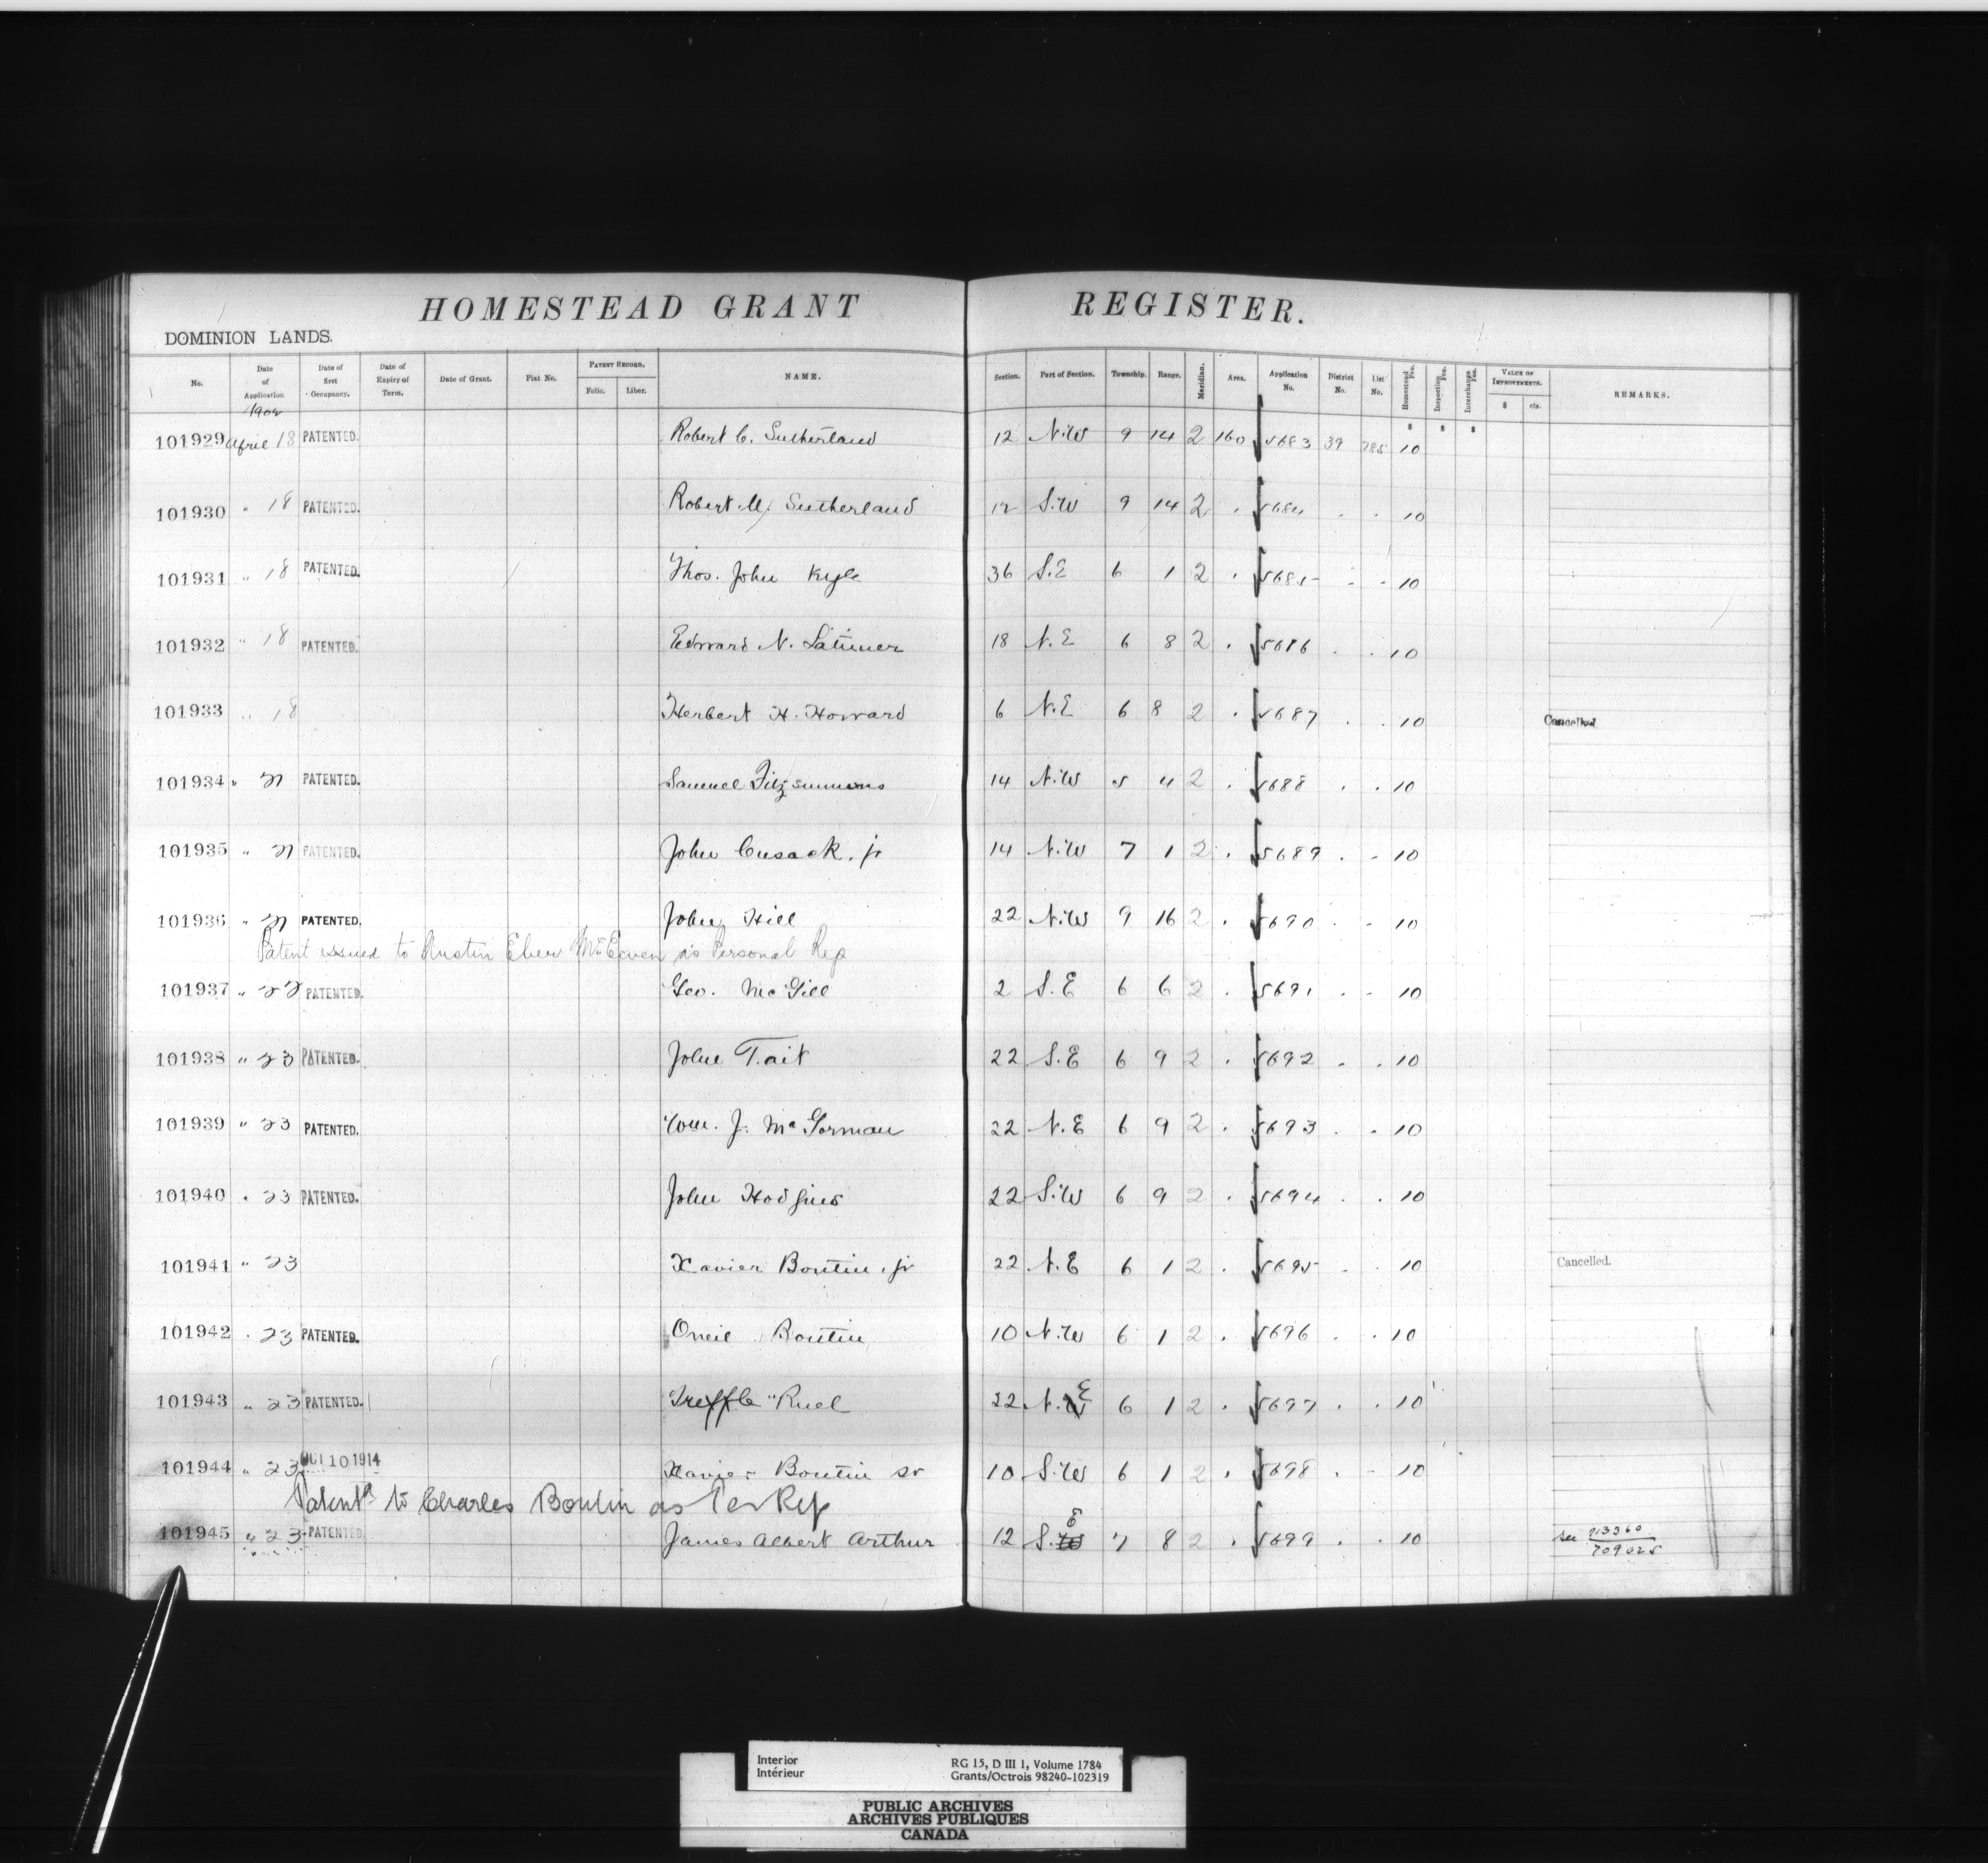 HOMESTEAD GRANT REGISTER.
DOMINION LANDS.
No. Date of Application. Date of first Occupancy. Date of Expiry of Term. Date of Grant. Fiat No. PATENT RECORD. Folio. Liber. NAME. Section. Part of Section. Township. Range. Meridian. Area. Application No. District No. List No. Homestead Fee. Inspection Fee. Interchange Fee. VALUE OF IMPROVEMENTS. $ cts. REMARKS.
1902
101929 April 18 PATENTED. Robert C. Sutherland 12 N.W 9 14 2 160 5683 39 785 10
101930 " 18 PATENTED. Robert M. Sutherland 12 S.W 9 14 2 . 5684 . . 10
101931 " 18 PATENTED. Thos. John Kyle 36 S.E 6 1 2 . 5685 . . 10
101932 " 18 PATENTED. Edward N. Latimer 18 N.E 6 8 2 . 5686 . . 10
101933 " 18 Herbert H. Howard 6 N.E 6 8 2 . 5687 . . 10 Cancelled
101934 " 21 PATENTED. Samuel Fitzsimmons 14 N.W 5 4 2 . 5688 . . 10
101935 " 21 PATENTED. John Cusack. jr 14 N.W 7 1 2 . 5689 . . 10
101936 " 21 PATENTED. John Hill 22 N.W 9 16 2 . 5690 . . 10
Patent issued to Austin Eber McEwen as Personal Rep
101937 " 22 PATENTED. Geo. McGill 2 S.E 6 6 2 . 5691 . . 10
101938 " 23 PATENTED. John Tait 22 S.E 6 9 2 . 5692 . . 10
101939 " 23 PATENTED. Wm. J. McGorman 22 N.E 6 9 2 . 5693 . . 10
101940 " 23 PATENTED. John Hodgins 22 S.W 6 9 2 . 5694 . . 10
101941 " 23 Xavier Boutin. jr 22 N.E 6 1 2 . 5695 . . 10 Cancelled.
101942 " 23 PATENTED. Oneil Boutin 10 N.W 6 1 2 . 5696 . . 10
101943 " 23 PATENTED. Treffle Ruel 22 N.E 6 1 2 . 5697 . . 10
101944 " 23 OCT 10 1914 Xavier Boutin sr 10 S.W 6 1 2 . 5698 . . 10
Patent to Charles Boutin as Per Rep
101945 " 23 PATENTED James Albert Arthur 12 S.E 7 8 2 . 5699 . . 10 see 709025
Interior
Intérieur
RG 15, D III 1, Volume 1784
Grants/Octrois 98240-102319
PUBLIC ARCHIVES
ARCHIVES PUBLIQUES
CANADA